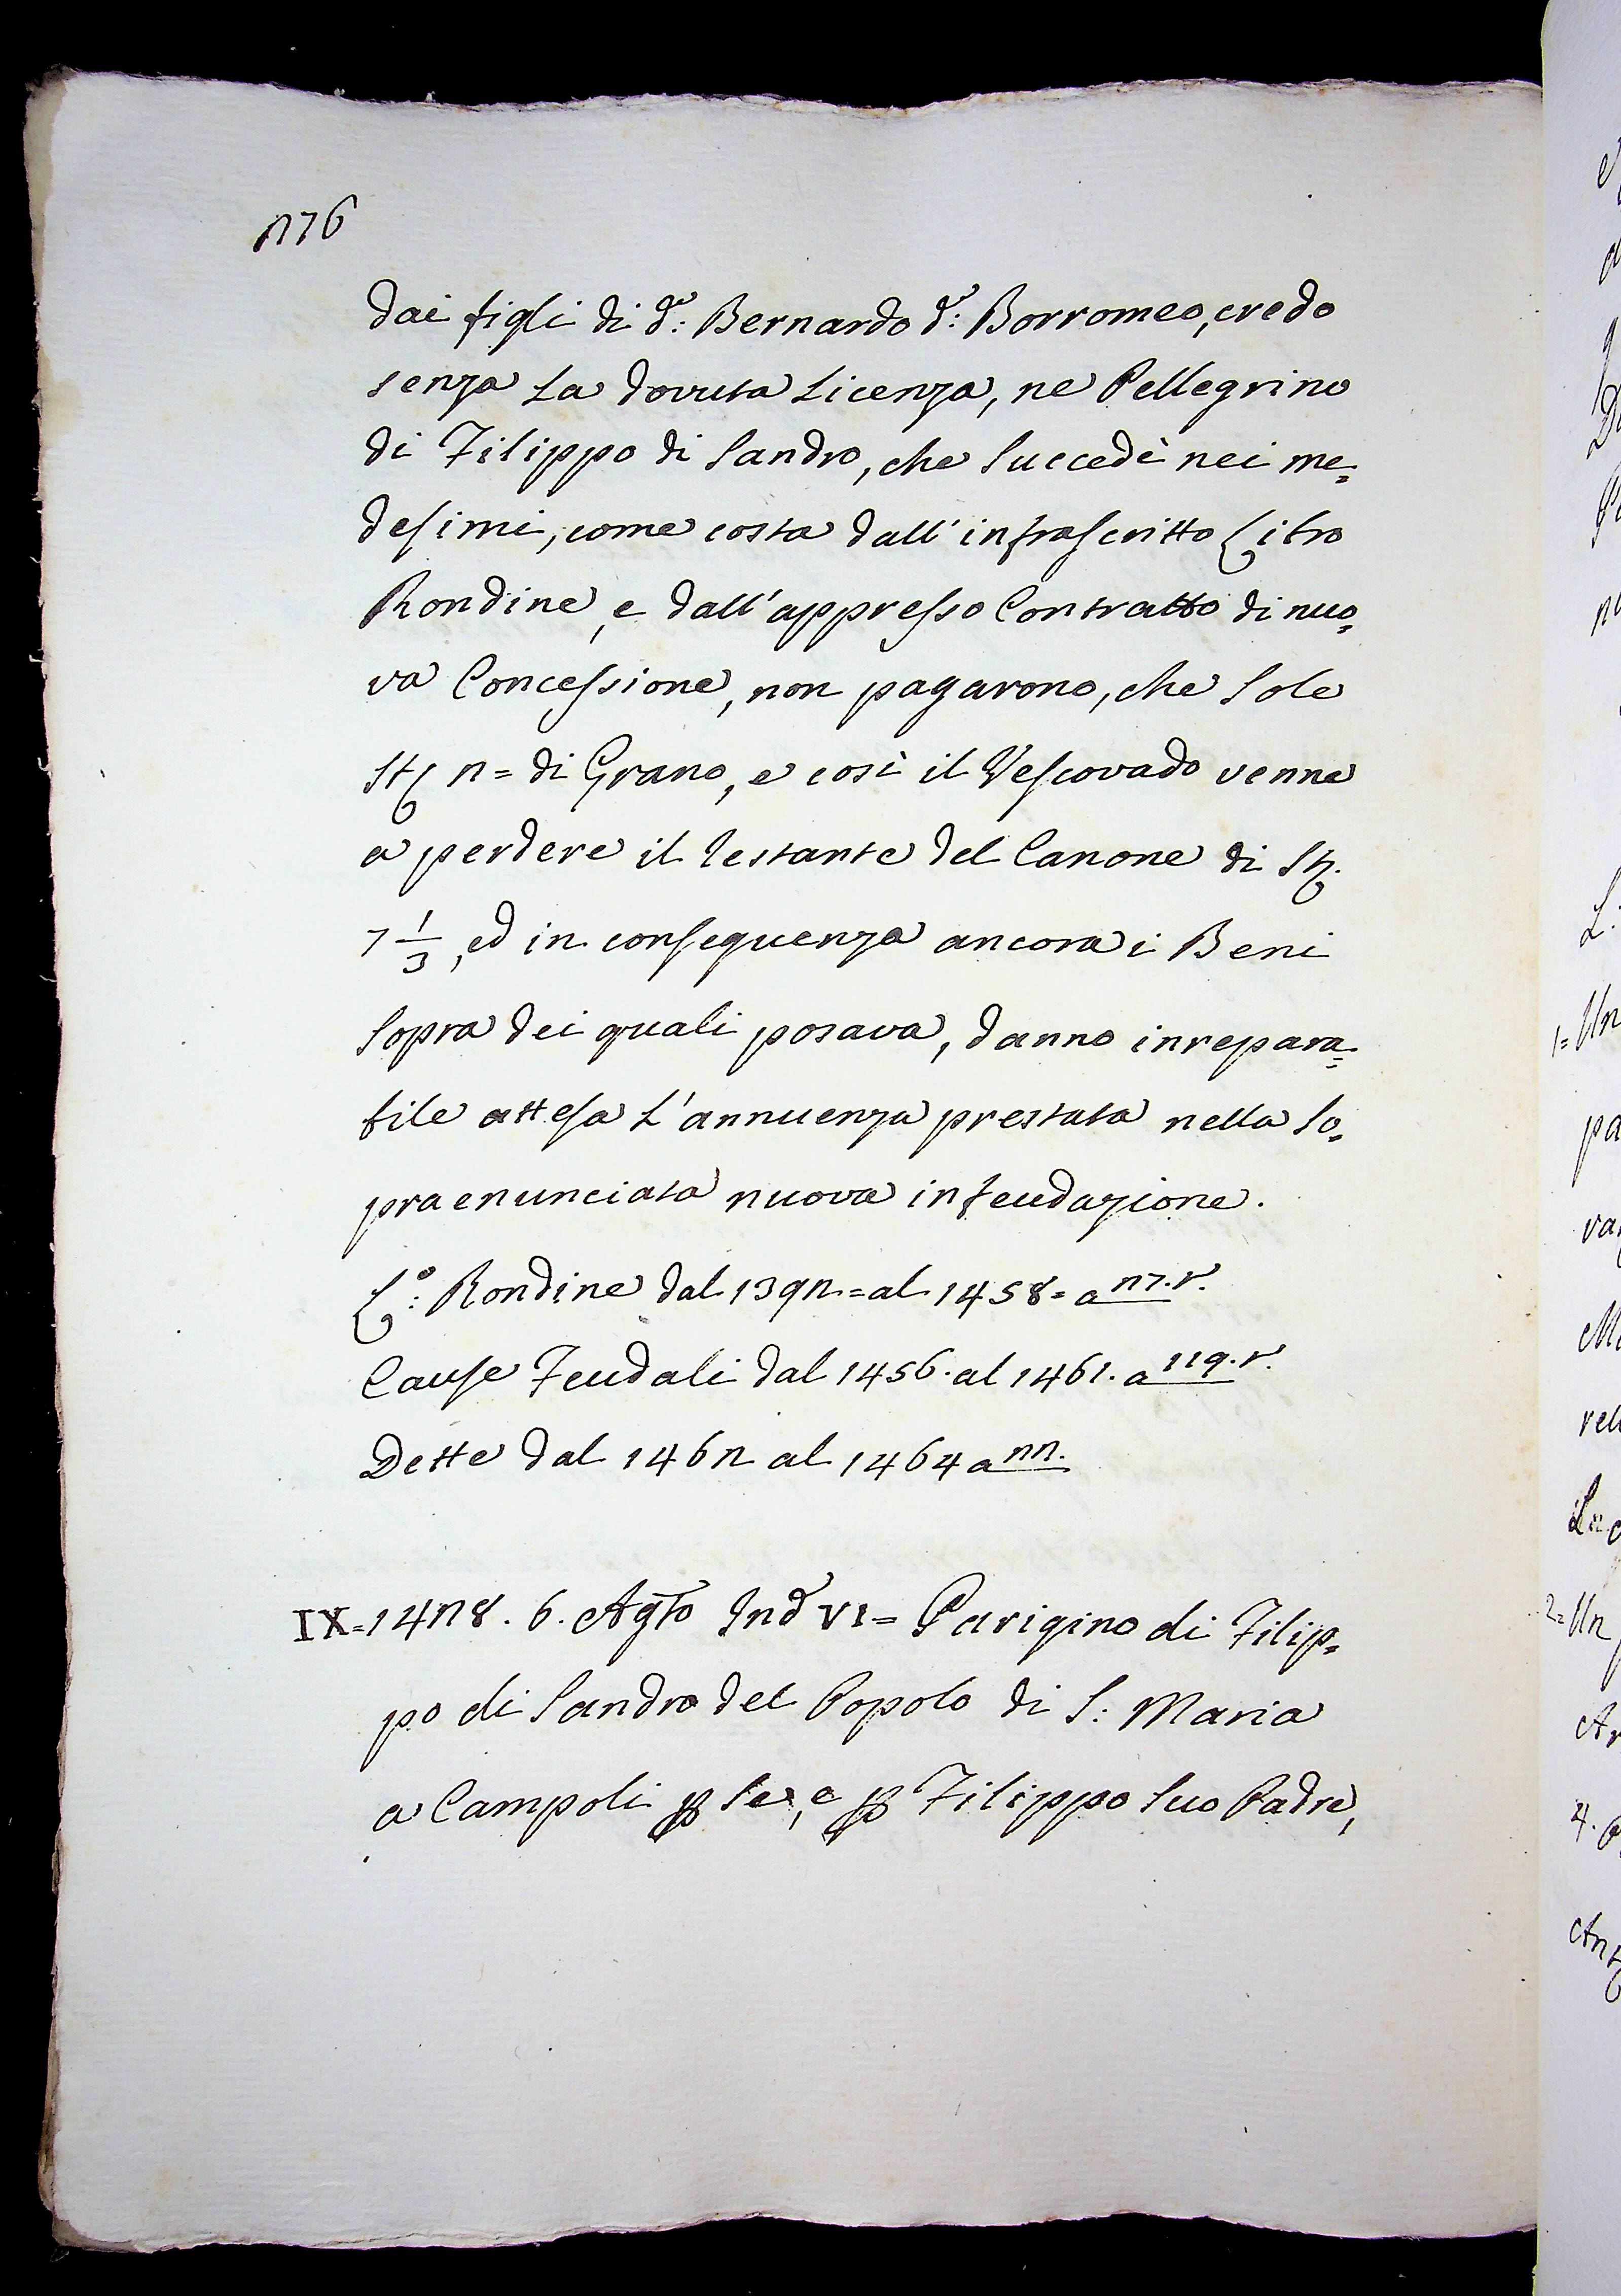 276
dai figli di d.º: Bernardo d.º: Borromeo, credo
senza la dovuta licenza, ne Pellegrino
di Filippo di Sandro, che succedè nei me=
desimi, come costa dall'infrascritto Libro
Rondine, e dall'appresso Contratto di nuo=
va Concessione, non pagarono, che sole
St. 2= di Grano, e così il Vescovado venne
a perdere il restante del Canone di St.
7 1/3, ed in conseguenza ancora i Beni
sopra dei quali posava, danno inrepara=
bile attesa l'annuenza prestata nella so=
praenunciata nuova infeudazione.
L.º: Rondine dal 1392=al 1458=a 27.r.
Cause Feudali dal 1456. al 1461. a 119.r.
Dette dal 1462 al 1464 a 22.
IX=1428. 6. Agto Ind VI= Parigino di Filip=
po di Sandro del Popolo di S: Maria
a Campoli p se, e p Filippo suo Padre,